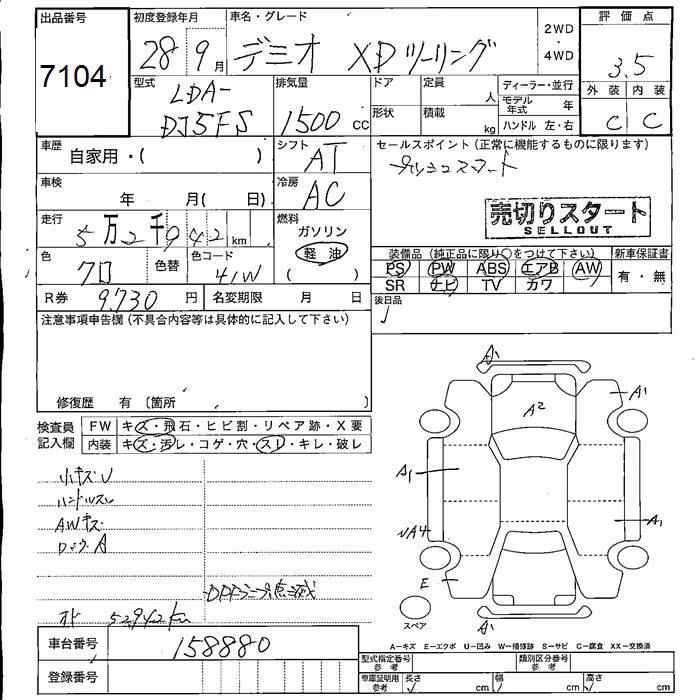 出品番号
7104
初度登録年月
28 9月
車名・グレード
デミオ XDツーリング
2WD
・
4WD
評価点
3.5
外装 内装
C C
型式
LDA-
DJ5FS
排気量
1500 cc
ドア
定員
人
形状
積載
kg
ディーラー・並行
モデル年式 年
ハンドル 左・右
車歴
自家用・( )
シフト
AT
セールスポイント (正常に機能するものに限ります)
プッシュスタート
車検
年 月( 日)
冷房
AC
売切りスタート
SELLOUT
走行
5万2千942km
燃料
ガソリン
軽油
( )
装備品 (純正品に限り○をつけて下さい)
新車保証書
PS PW ABS エアB AW
SR ナビ TV カワ
有・無
色
色替
色コード
41W
後日品
R券 9,730 円
名変期限 月 日
注意事項申告欄 (不具合内容等は具体的に記入して下さい)
修復歴 有 〔箇所 〕
検査員
記入欄
FW キズ・飛石・ヒビ割・リペア跡・X要
内装 キズ・汚レ・コゲ・穴・スリ・キレ・破レ
小キズU
ハンドルスレ
AWキズ
ロックA
DPFランプ点滅
52942km
A1
A2
A1
A1
A1
UA4
E
A1
スペア
A−キズ E−エクボ U−凹み W−補修跡 S−サビ C−腐食 XX−交換済
車台番号
158880
登録番号
型式指定番号
参考
類別区分番号
参考
車庫証明用
参考
長さ cm
幅 cm
高さ cm